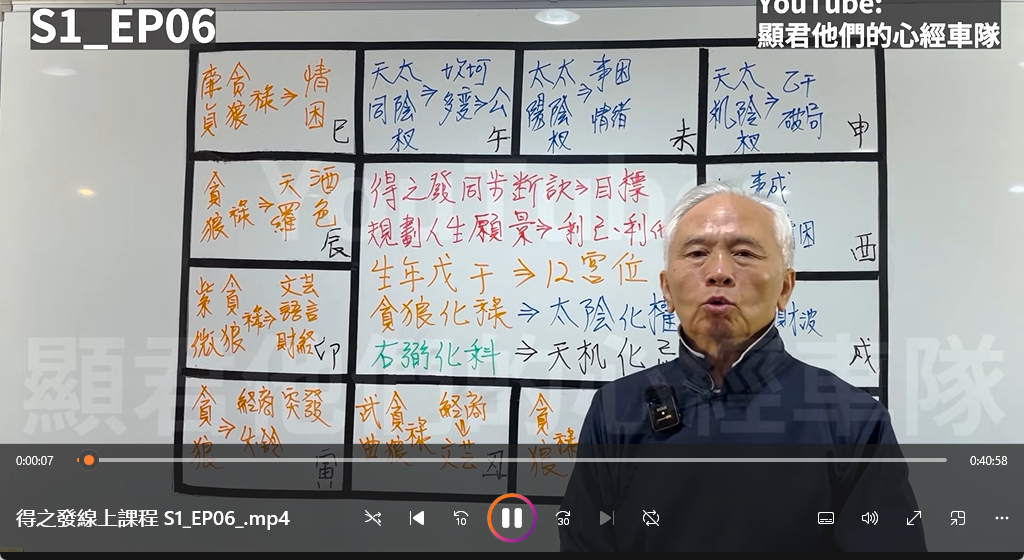 S1_EP06
YouTube:
顯君他們的心經車隊
廉貪 情
貞狼祿⇒困
巳
天太 坎坷
同陰⇒多變⇒公
权
午
太太 事困
陽陰⇒情緒
权
未
天太 乙干
机陰⇒破局
权
申
貪 天酒
狼祿⇒羅色
辰
得之發同步断訣⇒目標
規劃人生願景⇒利己、利
生年戊干⇒12宮位
貪狼化祿⇒太陰化權
右弼化科⇒天机化忌
事成
困
酉
紫貪 文芸
微狼祿⇒語言
財經
卯
財波
戌
貪 經商突發
狼⇒火鈴
寅
武貪 經商
曲狼祿 文芸
丑
貪
狼祿
YouTube:
顯君他們的心經車隊
0:00:07
0:40:58
得之發線上課程 S1_EP06_.mp4
10
30